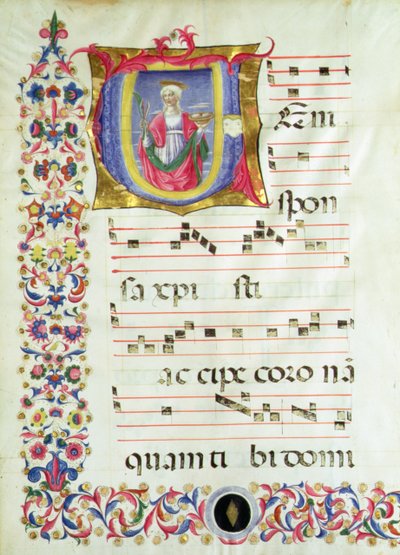 VENI
spon
sa xpi sti
ac cipe coro nā
quam ti bi domi